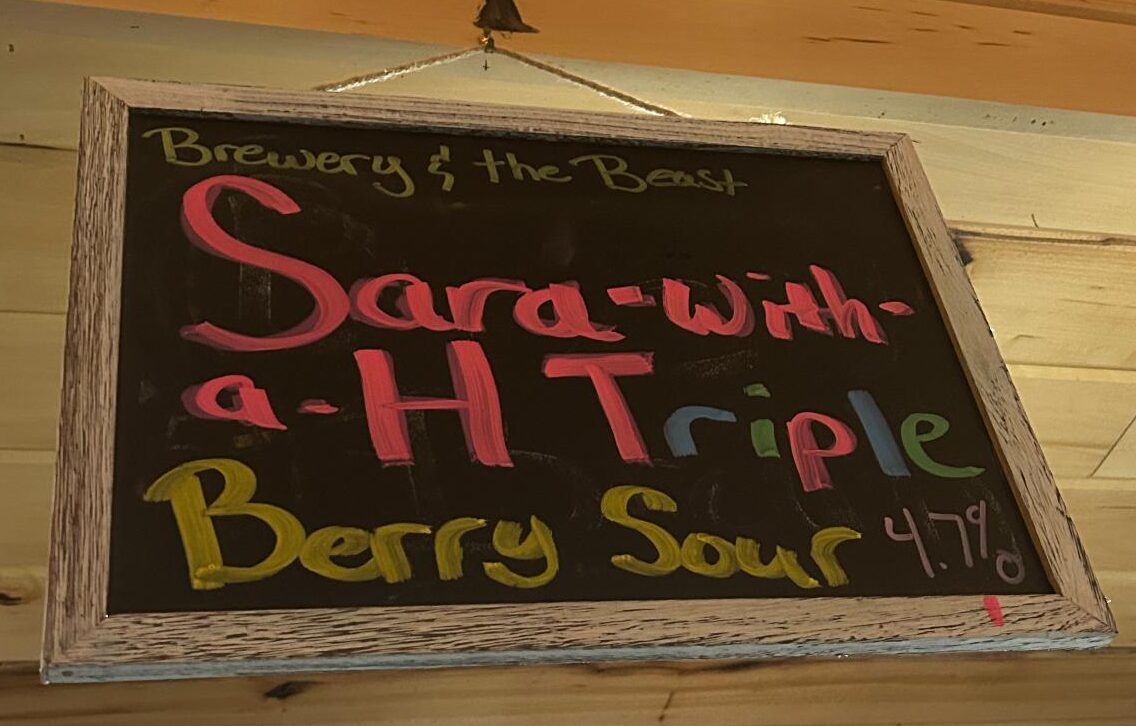 Brewery & the Beast
Sara-with-
a-H Triple
Berry Sour 4.7%